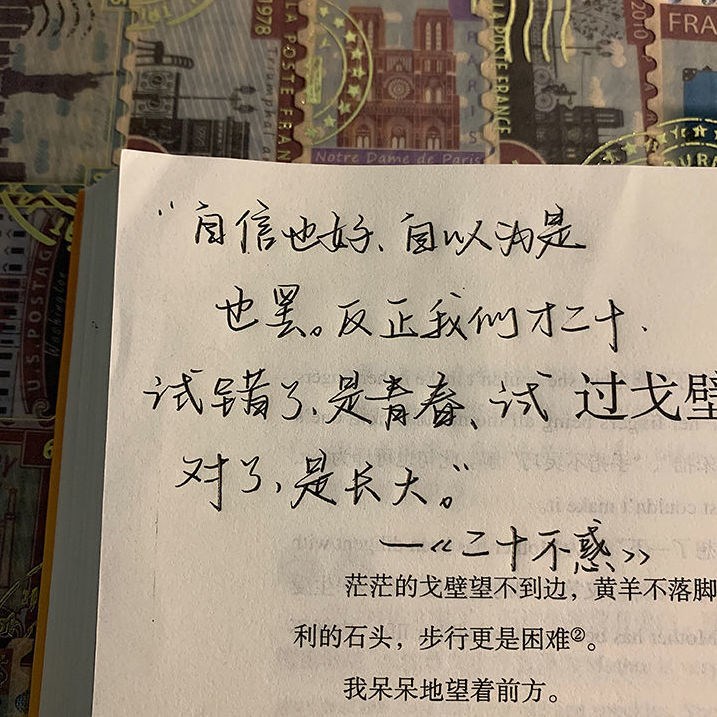 1978
LA POSTE FRAN
2010
LA POSTE FRANCE
FRA
PARIS
Notre Dame de Paris
U.S. POSTAG
Washington
“自信也好、自以为是
也罢。反正我们才二十.
试错了、是青春、试
过戈壁
对了、是长大。”
—《二十不惑》
茫茫的戈壁望不到边，黄羊不落脚
利的石头，步行更是困难②。
我呆呆地望着前方。